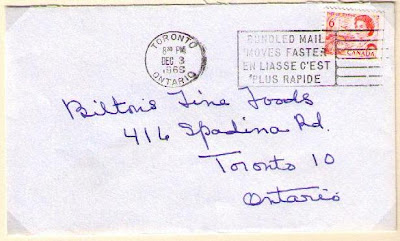 TORONTO
8 30 PM
DEC 3
1968
ONTARIO
BUNDLED MAIL
MOVES FASTER
EN LIASSE C'EST
PLUS RAPIDE
6
CANADA
Biltons Fine Foods
416 Spadina Rd.
Toronto 10
Ontario